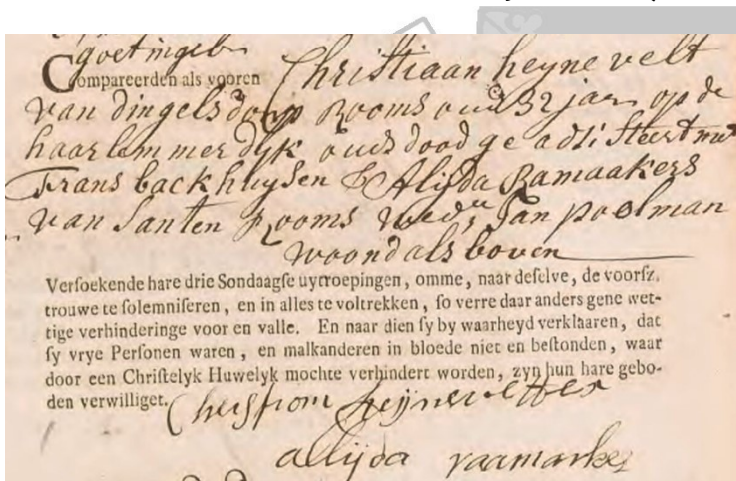 goetingeb
Compareerden als vooren Christiaan heynevelt
van dingelsdorp Rooms oud 32 jar op de
haarlemmerdyk ouds dood geadsisteert met
Frans backhuysen & Alijda Ramaakers
van Santen Rooms wed.e Jan poelman
woond als boven
Versoekende hare drie Sondaagse uytroepingen, omme, naar deselve, de voorsz.
trouwe te solemniseren, en in alles te voltrekken, so verre daar anders gene wet-
tige verhinderinge voor en valle. En naar dien sy by waarheyd verklaaren, dat
sy vrye Personen waren, en malkanderen in bloede niet en bestonden, waar
door een Christelyk Huwelyk mochte verhindert worden, zyn hun hare gebo-
den verwilliget.
alijda raamarkes